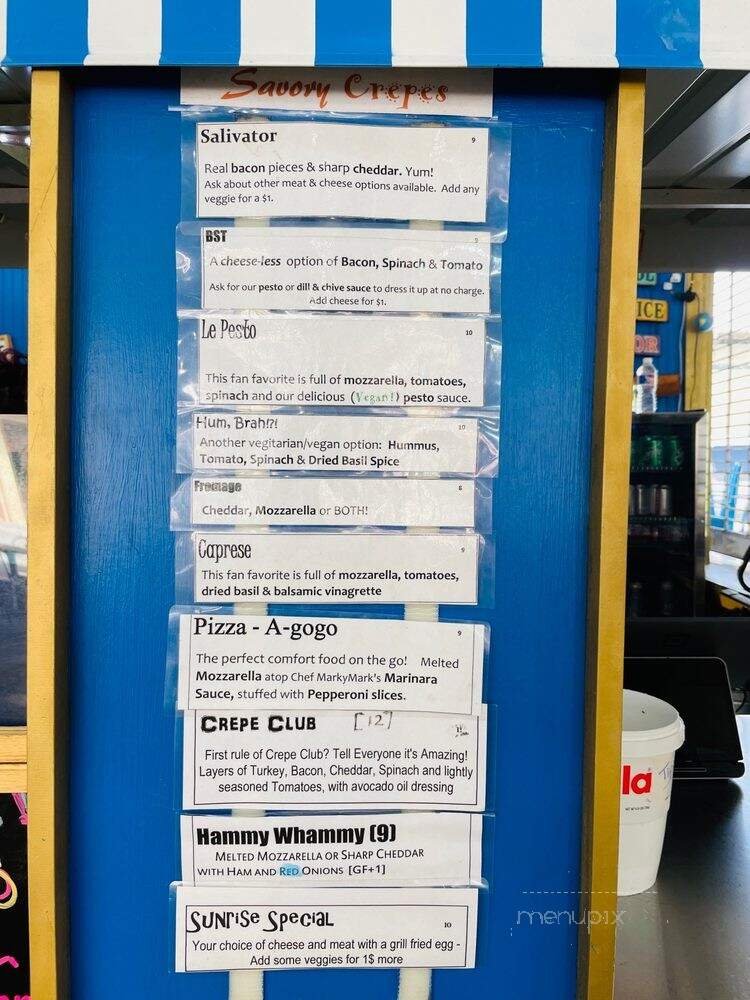 Savory Crepes
Salivator 9
Real bacon pieces & sharp cheddar. Yum!
Ask about other meat & cheese options available. Add any
veggie for a $1.
BST 9
A cheese-less option of Bacon, Spinach & Tomato
Ask for our pesto or dill & chive sauce to dress it up at no charge.
Add cheese for $1.
Le Pesto 10
This fan favorite is full of mozzarella, tomatoes,
spinach and our delicious (Vegan!) pesto sauce.
Hum, Brah!?! 10
Another vegitarian/vegan option: Hummus,
Tomato, Spinach & Dried Basil Spice
Fromage 8
Cheddar, Mozzarella or BOTH!
Caprese 9
This fan favorite is full of mozzarella, tomatoes,
dried basil & balsamic vinagrette
Pizza - A-gogo 9
The perfect comfort food on the go! Melted
Mozzarella atop Chef MarkyMark's Marinara
Sauce, stuffed with Pepperoni slices.
CREPE CLUB [12]
First rule of Crepe Club? Tell Everyone it's Amazing!
Layers of Turkey, Bacon, Cheddar, Spinach and lightly
seasoned Tomatoes, with avocado oil dressing
Hammy Whammy (9)
MELTED MOZZARELLA OR SHARP CHEDDAR
WITH HAM AND RED ONIONS [GF+1]
SUNRISE SPECIAL 10
Your choice of cheese and meat with a grill fried egg -
Add some veggies for 1$ more
ICE
OR
la
menupix